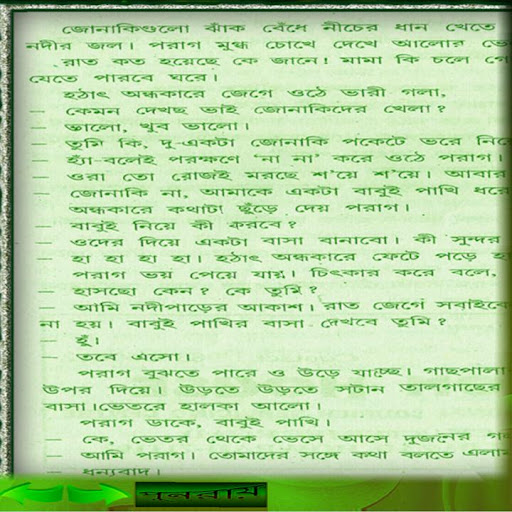 জোনাকিগুলো ঝাঁক বেঁধে নীচের ধান খেতে
নদীর জল। পরাগ মুগ্ধ চোখে দেখে আলোর
রাত কত হয়েছে কে জানে! মামা কি চলে
যেতে পারবে ঘরে।
হঠাৎ অন্ধকারে জেগে ওঠে ভারী গলা,
— কেমন দেখছ ভাই জোনাকিদের খেলা?
— ভালো, খুব ভালো।
— তুমি কি, দু-একটা জোনাকি পকেটে ভরে
— হ্যাঁ-বলেই পরক্ষণে 'না না' করে ওঠে পরাগ।
— ওরা তো রোজই মরছে শ'য়ে শ'য়ে। আবার
— জোনাকি না, আমাকে একটা বাবুই পাখি
অন্ধকারে কথাটা ছুঁড়ে দেয় পরাগ।
— বাবুই নিয়ে কী করবে?
— ওদের দিয়ে একটা বাসা বানাবো। কী সুন্দর
— হা হা হা হা। হঠাৎ অন্ধকারে ফেটে পড়ে
পরাগ ভয় পেয়ে যায়। চিৎকার করে বলে,
— হাসছো কেন? কে তুমি?
— আমি নদীপাড়ের আকাশ। রাত জেগে
না হয়। বাবুই পাখির বাসা দেখবে তুমি?
— হুঁ।
— তবে এসো।
পরাগ বুঝতে পারে ও উড়ে যাচ্ছে। গাছপালা
উপর দিয়ে। উড়তে উড়তে সটান তালগাছের
বাসা। ভেতরে হালকা আলো।
পরাগ ডাকে, বাবুই পাখি।
— কে, ভেতর থেকে ভেসে আসে দুজনের
— আমি পরাগ। তোমাদের সঙ্গে কথা বলতে
— ধন্যবাদ।
পুনরায়